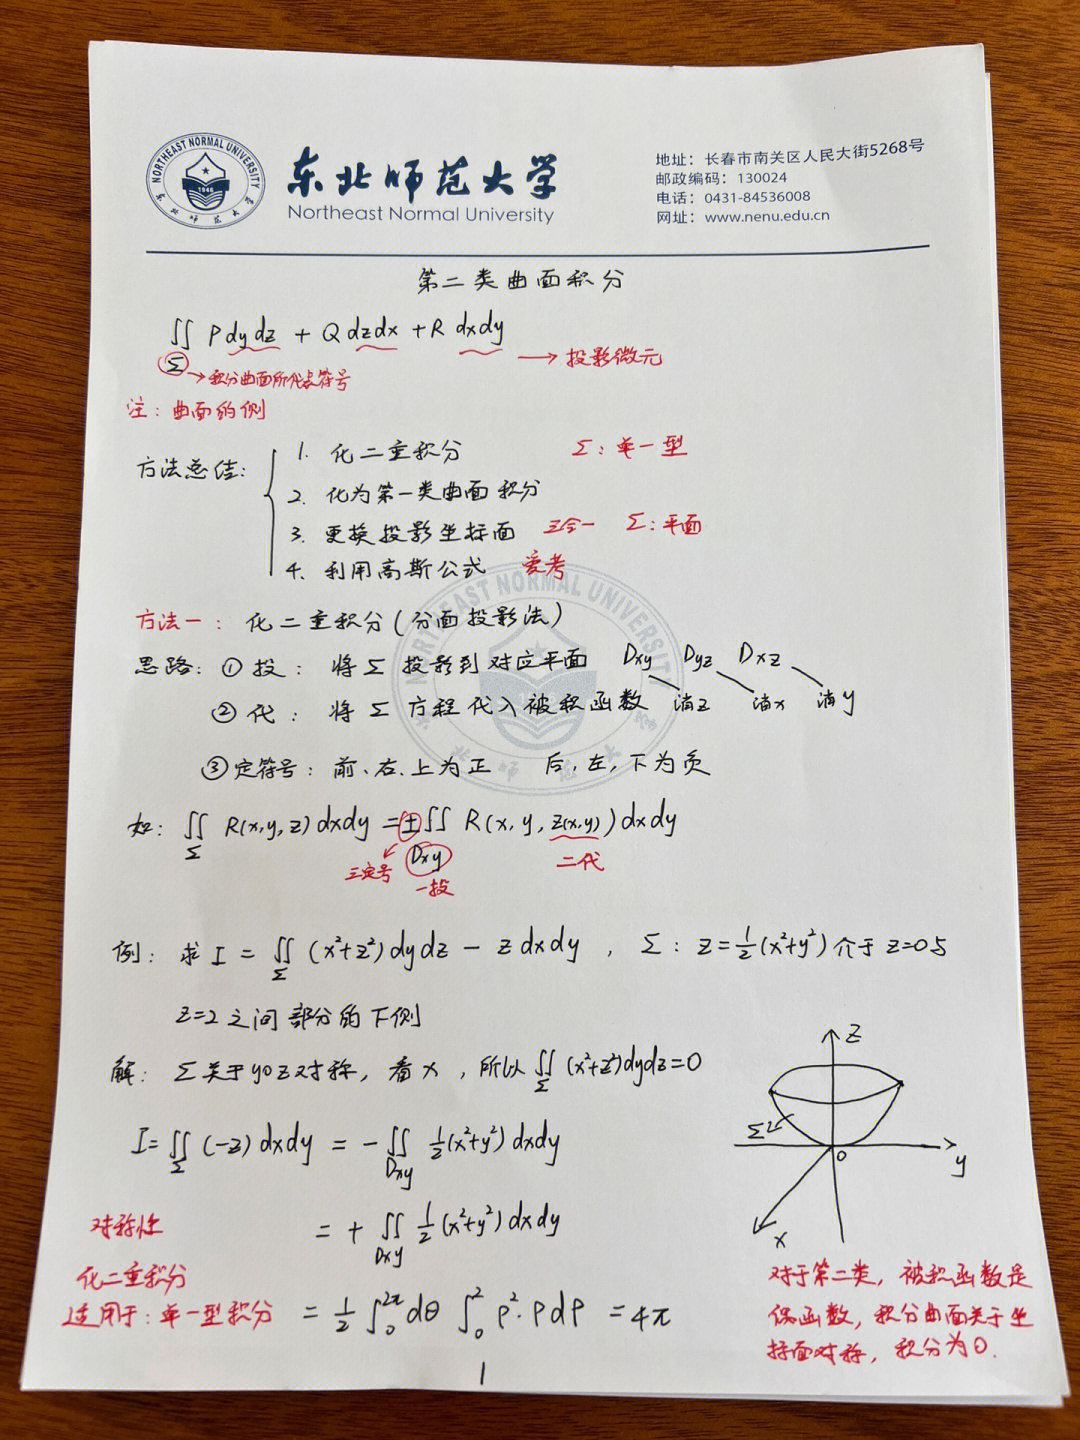 NORTHEAST NORMAL UNIVERSITY
1946
东北师范大学
东北师范大学
Northeast Normal University
地址：长春市南关区人民大街5268号
邮政编码：130024
电话：0431-84536008
网址：www.nenu.edu.cn
第二类曲面积分
∬ Pdydz + Qdzdx + R dxdy → 投影微元
Σ → 积分曲面所代表符号
注：曲面的侧
方法总结：
1. 化二重积分 Σ：单一型
2. 化为第一类曲面积分
3. 更换投影坐标面 三合一 Σ：平面
4. 利用高斯公式 爱考
方法一：化二重积分(分面投影法)
思路：① 投：将Σ投影到对应平面 Dxy Dyz Dxz
② 代：将Σ方程代入被积函数 消z 消x 消y
③ 定符号：前、右、上为正 后，左，下为负
如：∬_Σ R(x,y,z)dxdy = ±∬_Dxy R(x,y,z(x,y))dxdy
三定号 一投 二代
例：求 I = ∬_Σ (x²+z²)dydz − zdxdy ，Σ：z=½(x²+y²)介于z=0与
z=2之间部分的下侧
解：Σ关于yoz对称，看x，所以∬_Σ (x²+z²)dydz=0
I=∬_Σ (-z)dxdy = −∬_Dxy ½(x²+y²)dxdy
对称性 = +∬_Dxy ½(x²+y²)dxdy
化二重积分
适用于：单一型积分 = ½∫₀^2π dθ ∫₀² ρ²·ρdρ = 4π
z
Σ
o
y
x
对于第二类，被积函数是
偶函数，积分曲面关于坐
标面对称，积分为0.
1
NORTHEAST NORMAL UNIVERSITY